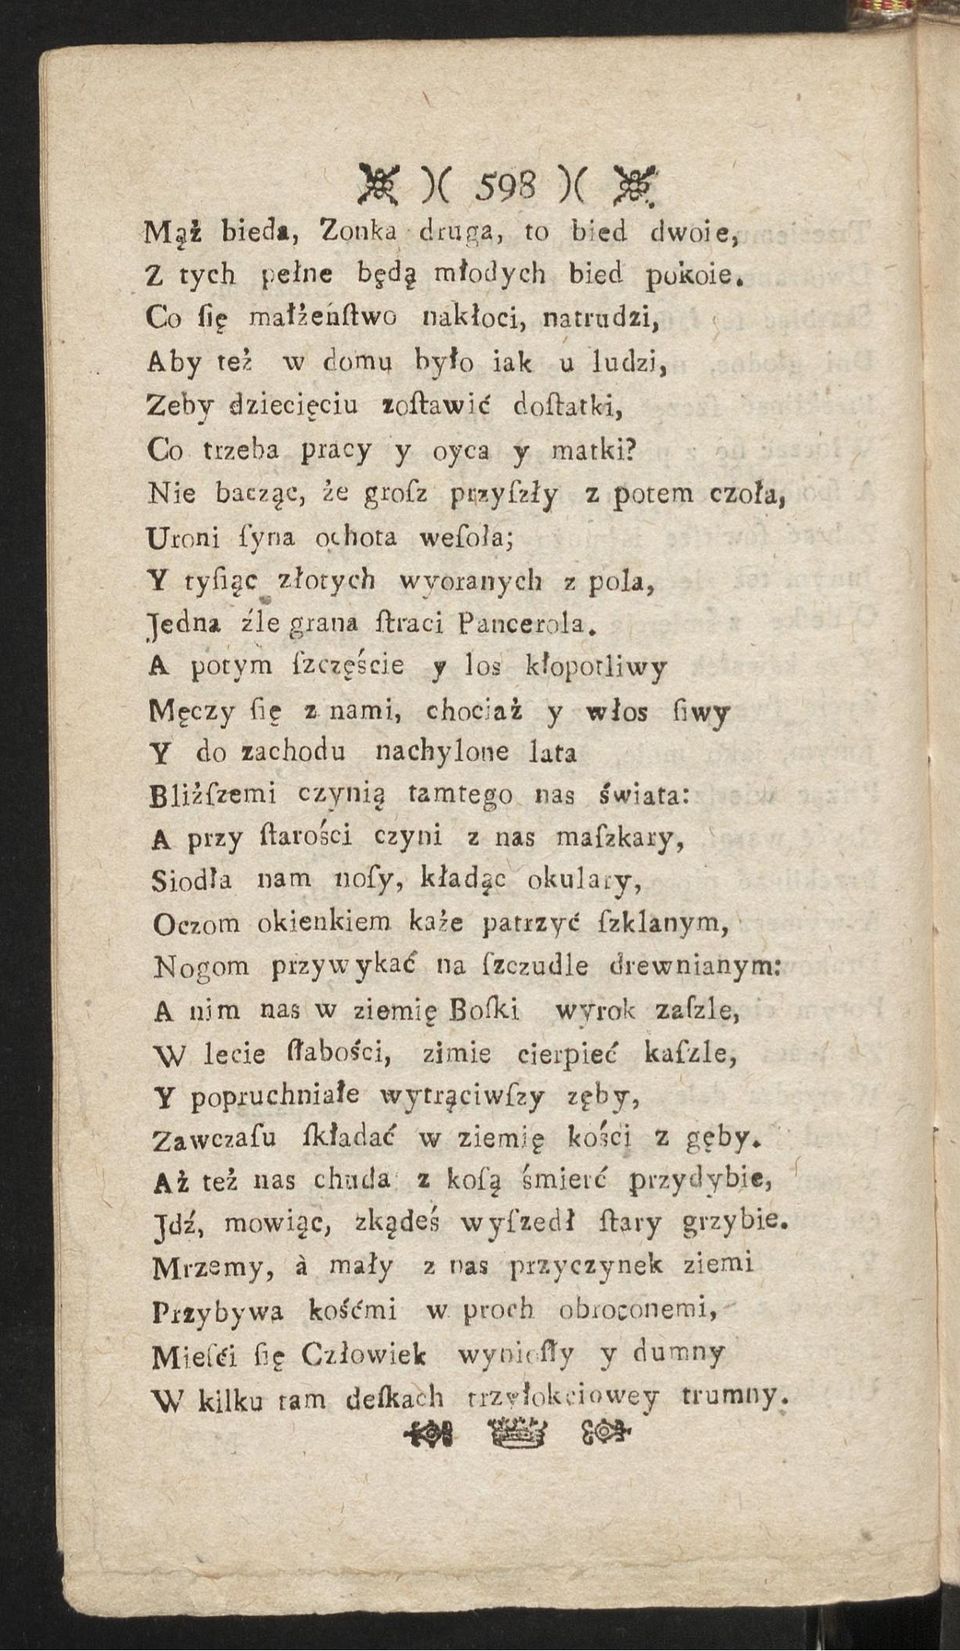 )( 598 )(
Mąż bieda, Zonka druga, to bied dwoie,
Z tych pełne będą młodych bied pokoie.
Co ſię małżeńſtwo nakłoci, natrudzi,
Aby też w domu było iak u ludzi,
Zeby dziecięciu zoſtawić doſtatki,
Co trzeba pracy y oyca y matki?
Nie bacząc, że groſz przyſzły z potem czoła,
Uroni ſyna ochota weſoła;
Y tyſiąc złotych wyoranych z pola,
Jedna źle grana ſtraci Pancerola.
A potym ſzczęście y los kłopotliwy
Męczy ſię z nami, chociaż y włos ſiwy
Y do zachodu nachylone lata
Bliżſzemi czynią tamtego nas świata:
A przy ſtarości czyni z nas maſzkary,
Siodła nam noſy, kładąc okulary,
Oczom okienkiem każe patrzyć ſzklanym,
Nogom przywykać na ſzczudle drewnianym:
A nim nas w ziemię Boſki wyrok zaſzle,
W lecie ſłabości, zimie cierpieć kaſzle,
Y popruchniałe wytrąciwſzy zęby,
Zawczaſu ſkładać w ziemię kości z gęby.
Aż też nas chuda z koſą śmierć przydybie,
Jdź, mowiąc, zkądeś wyſzedł ſtary grzybie.
Mrzemy, à mały z nas przyczynek ziemi
Przybywa kośćmi w proch obroconemi,
Mieſći ſię Człowiek wynioſły y dumny
W kilku tam deſkach trzyłokciowey trumny.